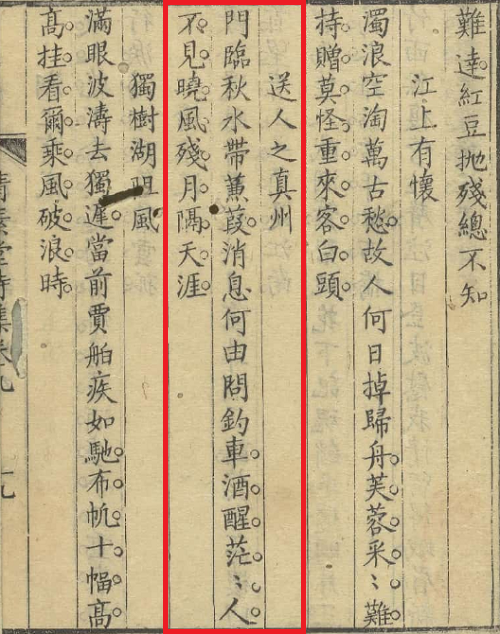 難達紅豆抛殘總不知
江上有懷
濁浪空淘萬古愁故人何日掉歸舟芙蓉采〻難
持贈莫怪重來客白頭
送人之真州
門臨秋水帶蒹葭消息何由問釣車酒醒茫〻人
不見曉風殘月隔天涯
獨樹湖阻風
滿眼波濤去獨遲當前賈舶疾如馳布帆十幅高
高挂看爾乘風破浪時